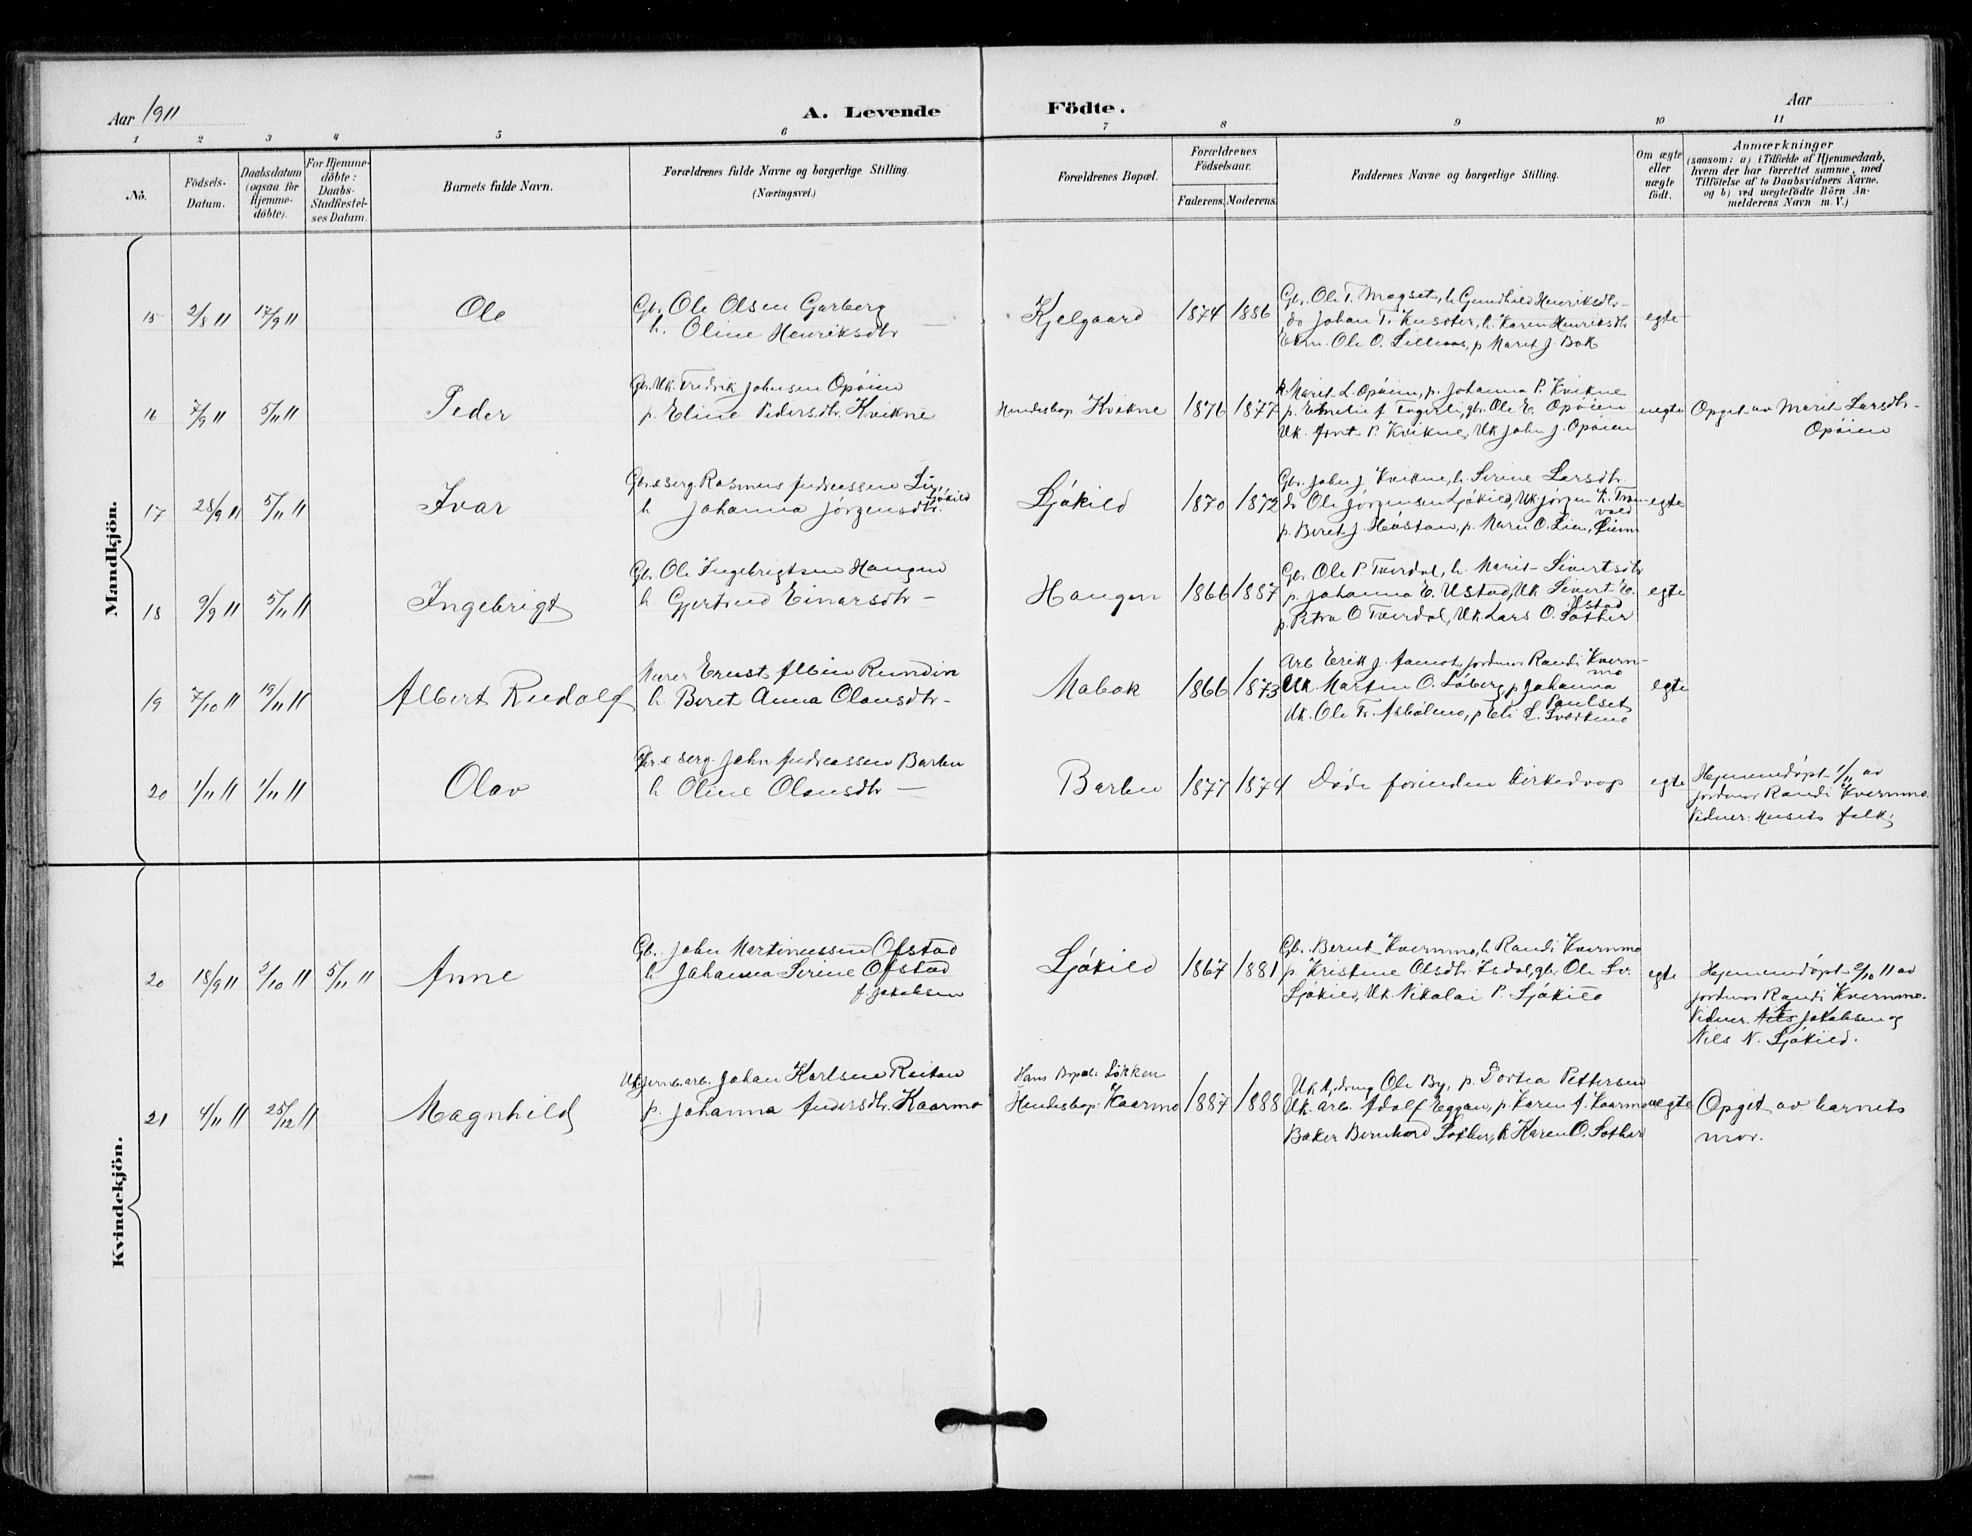 Aar 1911
A. Levende Födte.
Aar
1 2 3 4 5 6 7 8 9 10 11
No.
Födsels-Datum.
Daabsdatum (ogsaa for Hjemme-döbte).
For Hjemme-döbte: Daabs-Stadfæstel-ses Datum.
Barnets fulde Navn.
Forældrenes fulde Navne og borgerlige Stilling. (Næringsvei.)
Forældrenes Bopæl.
Forældrenes Födselsaar.
Faderens. Moderens.
Faddernes Navne og borgerlige Stilling.
Om ægte eller uægte födt.
Anmærkninger
(saasom: a) i Tilfælde af Hjemmedaab,
hvem der har forrettet samme, med
Tilföielse af to Daabsvidners Navne,
og b) ved uægtefödte Börn An-
melderens Navn m. V.)
Mandkjön.
15 2/8 11 17/9 11 Ole
Gbr. Ole Olsen Garberg
h. Oline Henriksdtr
Kjelgaard 1874 1886
Gbr. Ole T. Mogset, h. Gunhild Henriksdtr
do Johan T. Kusster, h. Karen Henriksdtr
Ole O. Lillevas, p Marit J. Bak
egte
16 7/9 11 5/11 11 Peder
Gbr. Uk. Fredrik Johnsen Opøien
p. Eline Pedersdtr. Kvikne
Hendes bop Kvikne 1876 1877
k. Marit L. Opøien, p. Johanna P. Kvikne
gbr. Ole E. Opøien
Uk. Arnt P. Kvikne, Uk John J. Opøien
uegte
Opget av Marit Larsdtr
Opøien
17 28/9 11 5/11 11 Ivar
Gbr. e serg. Rasmus Andreassen Lii
Ljøkild
h Johanna Jørgensdtr.
Ljøkild 1870 1872
Gbr. John J. Kvikne, h. Serine Larsdtr
do Ole Jørgensen Ljøkild, Uk Jørgen K.
p. Beret J. Høiston, p. Maren O. Lien,
egte
18 9/9 11 5/11 11 Ingebrigt
Gbr. Ole Ingebrigtsen Haugen
h Gjertrud Einarsdtr
Haugen 1866 1887
Gbr. Ole P. Tverdal, h. Marit Sivertsdtr
p. Johanna E. Ustad, Uk Sivert E.
Ustad
p. Petra O. Tverdal, Uk. Lars O. Sother
egte
19 7/10 11 19/11 11 Albert Rudolf
Murer Ernst Albin Rundin
h Beret Anna Olausdtr
Mobak 1866 1873
Arb Erik J. Aamot, jordmor Randi Kvern-
mo
Uk. Martin O. Løberg, p Johanna
Paulset
Uk. Ole Tr. Asbølmo, p Eli L. Svorkmo
egte
20 1/11 11 1/11 11 Olav
Gbr. e serg. John Andreassen Barlen
h Oline Olausdtr
Barlen 1877 1874
Døde forinden kirkedaap
egte
Hjemmedøpt 1/11 av
jordmor Randi Kvernmo.
Vidner: Husets folk.
Kvindekjön.
20 18/9 11 2/10 11 5/11 11 Anne
Gbr. John Martinussen Ofstad
h Johanna Serine Ofstad
f. Jakobsen
Ljøkild 1867 1881
Gbr. Bernt Kvernmo, h. Randi Kvernmo
p. Kristine Olsdtr. Isdal, gbr. Ole Sv.
Ljøkild, Uk. Nikolai P. Ljøkild
egte
Hjemmedøpt 2/10 11 av
jordmor Randi Kvernmo.
Vidner Jakobsen og
Nils N. Ljøkild.
21 4/11 11 25/12 11 Magnhild
Uk. jernb. arb. Johan Karlsen Reitan
p. Johanna Andersdtr. Kaarmo
Hans Bopæl: Løkken
Hendes bop: Kaarmo 1887 1888
Uk Ole By, p. Dortea Pettersen
Uk. arb. Adolf Eggan, p Karen A. Kaarmo
Baker Bernhard Sother, h Karen O. Sother
uegte
Opget av barnets
mor.